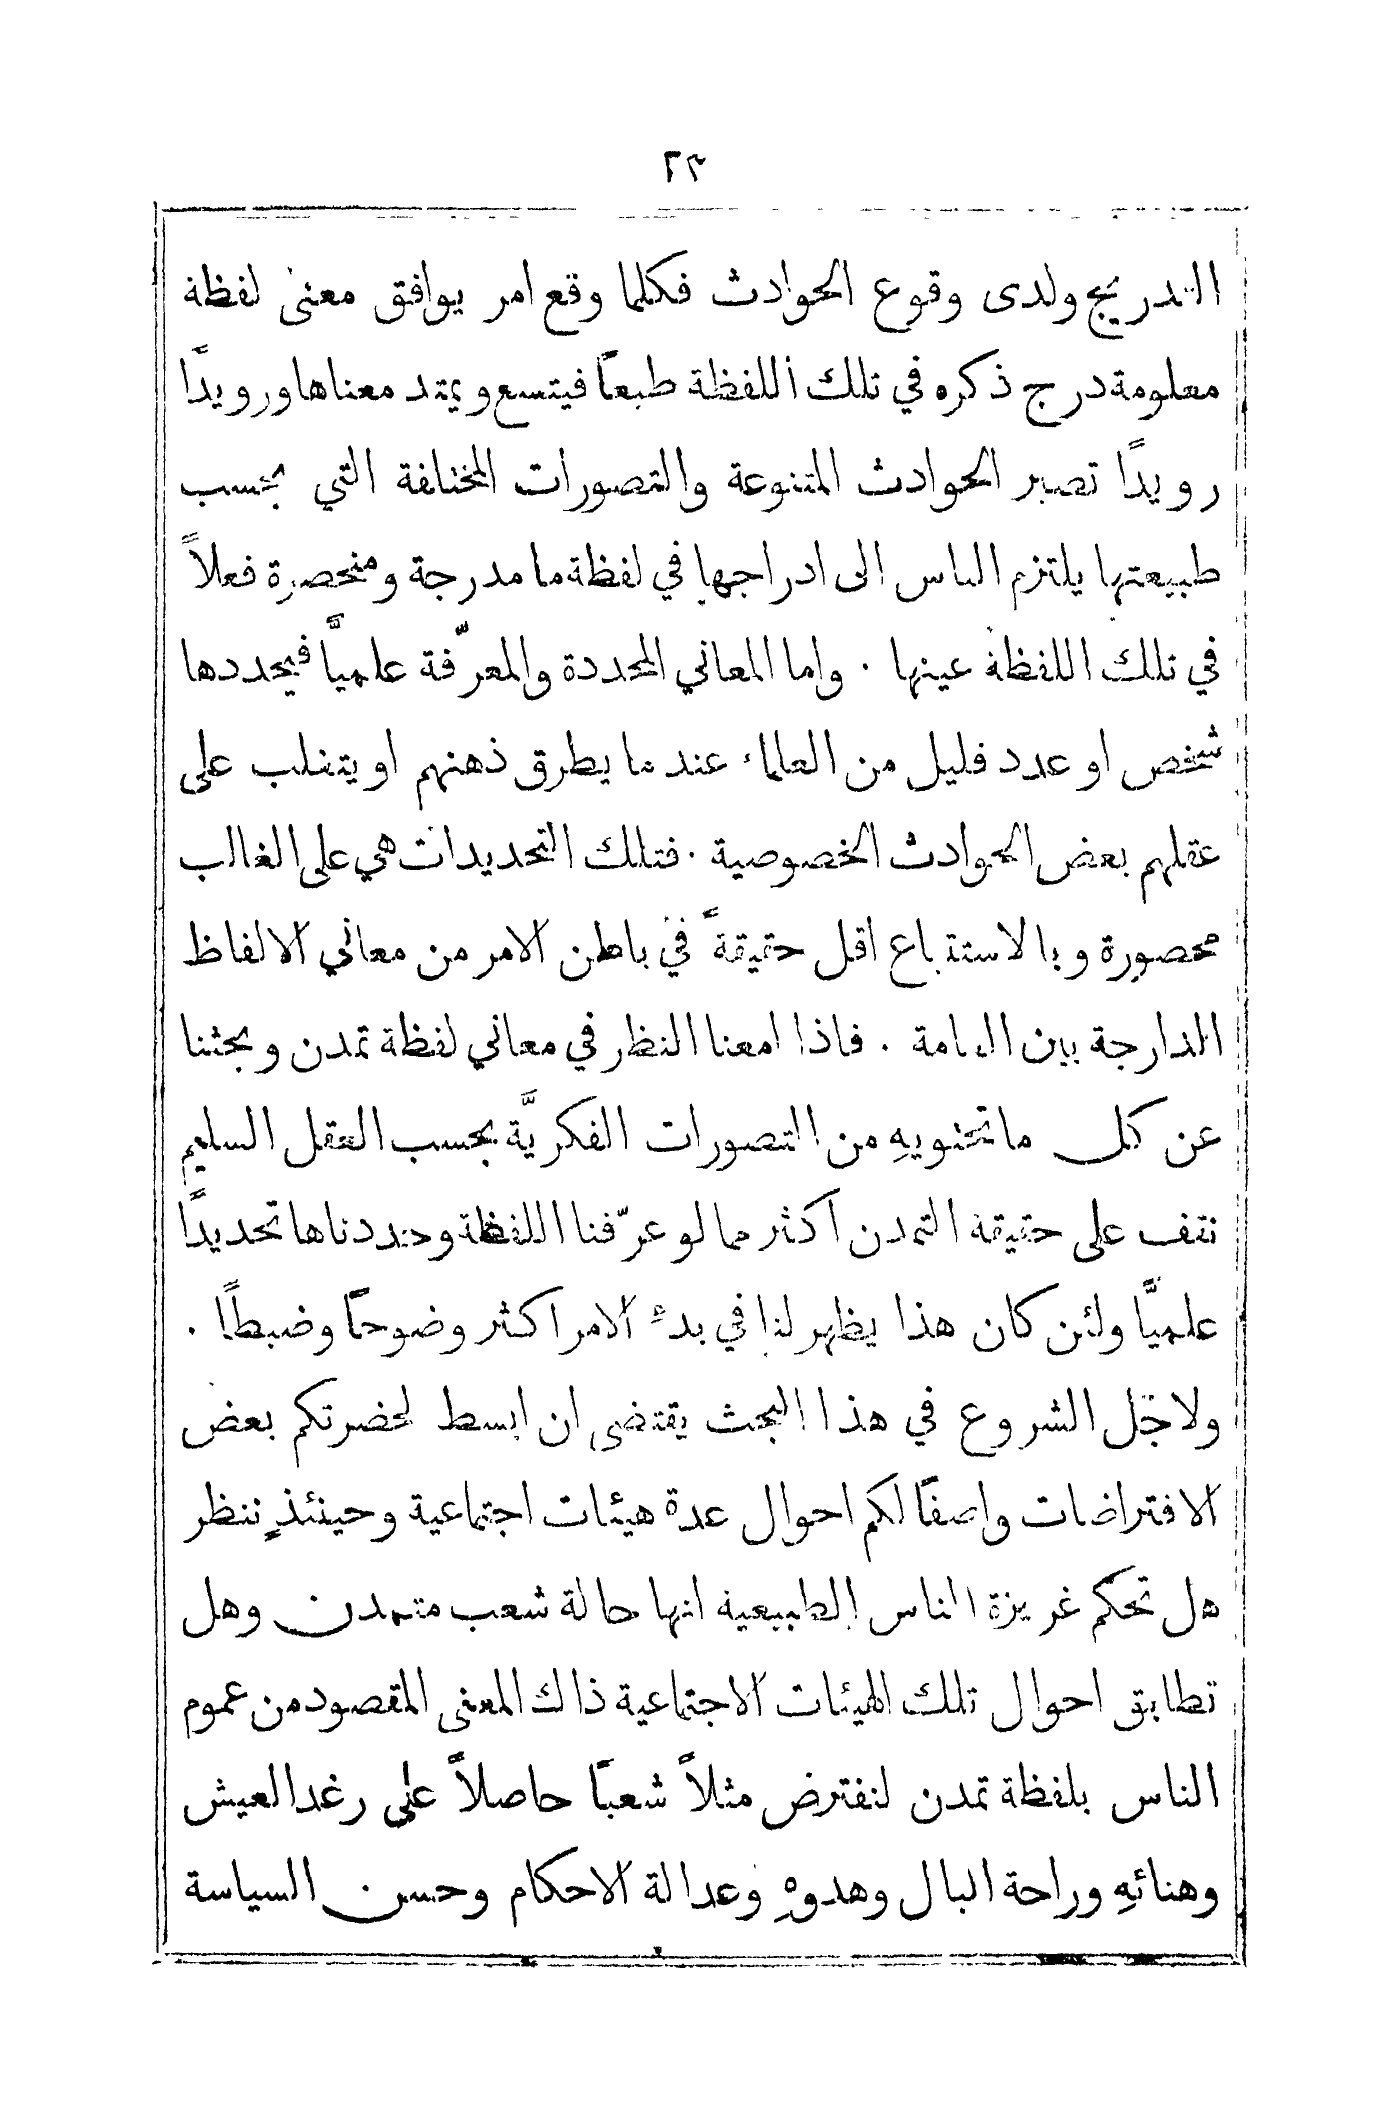 ٢٣
التدريج ولدى وقوع الحوادث فكلما وقع امر يوافق معنى لفظة
معلومة درج ذكره في تلك اللفظة طبعاً فيتسع ويمتد معناها ورويداً
رويداً تصير الحوادث المتنوعة والتصورات المختلفة التي بحسب
طبيعتها يلتزم الناس الى ادراجها في لفظة ما مدرجة ومنحصرة فعلاً
في تلك اللفظة عينها . واما المعاني المحددة والمعرّفة علميّاً فيحددها
شخص او عدد قليل من العلماء عند ما يطرق ذهنهم او يتغلب على
عقلهم بعض الحوادث الخصوصية . فتلك التحديدات هي على الغالب
محصورة وبالاستتباع اقل حقيقةً في باطن الامر من معاني الالفاظ
الدارجة بين العامة . فاذا امعنا النظر في معاني لفظة تمدن وبحثنا
عن كل ما تحتويهِ من التصورات الفكريَّة بحسب العقل السليم
نقف على حقيقة التمدن اكثر مما لو عرّفنا اللفظة وحددناها تحديداً
علميّاً ولئن كان هذا يظهر لنا في بدءِ الامر اكثر وضوحاً وضبطاً .
ولاجل الشروع في هذا البحث يقتضي ان ابسط لحضرتكم بعض
الافتراضات واصفاً لكم احوال عدة هيئات اجتماعية وحينئذٍ ننظر
هل تحكم غريزة الناس الطبيعية انها حالة شعب متمدن وهل
تطابق احوال تلك الهيئات الاجتماعية ذاك المعنى المقصود من عموم
الناس بلفظة تمدن لنفترض مثلاً شعباً حاصلاً على رغد العيش
وهنائهِ وراحة البال وهدوهِ وعدالة الاحكام وحسن السياسة